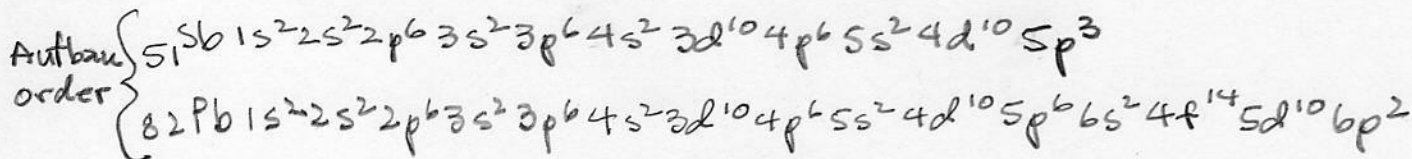 Aufbau order
51Sb 1s²2s²2p⁶3s²3p⁶4s²3d¹⁰4p⁶5s²4d¹⁰5p³
82Pb 1s²2s²2p⁶3s²3p⁶4s²3d¹⁰4p⁶5s²4d¹⁰5p⁶6s²4f¹⁴5d¹⁰6p²